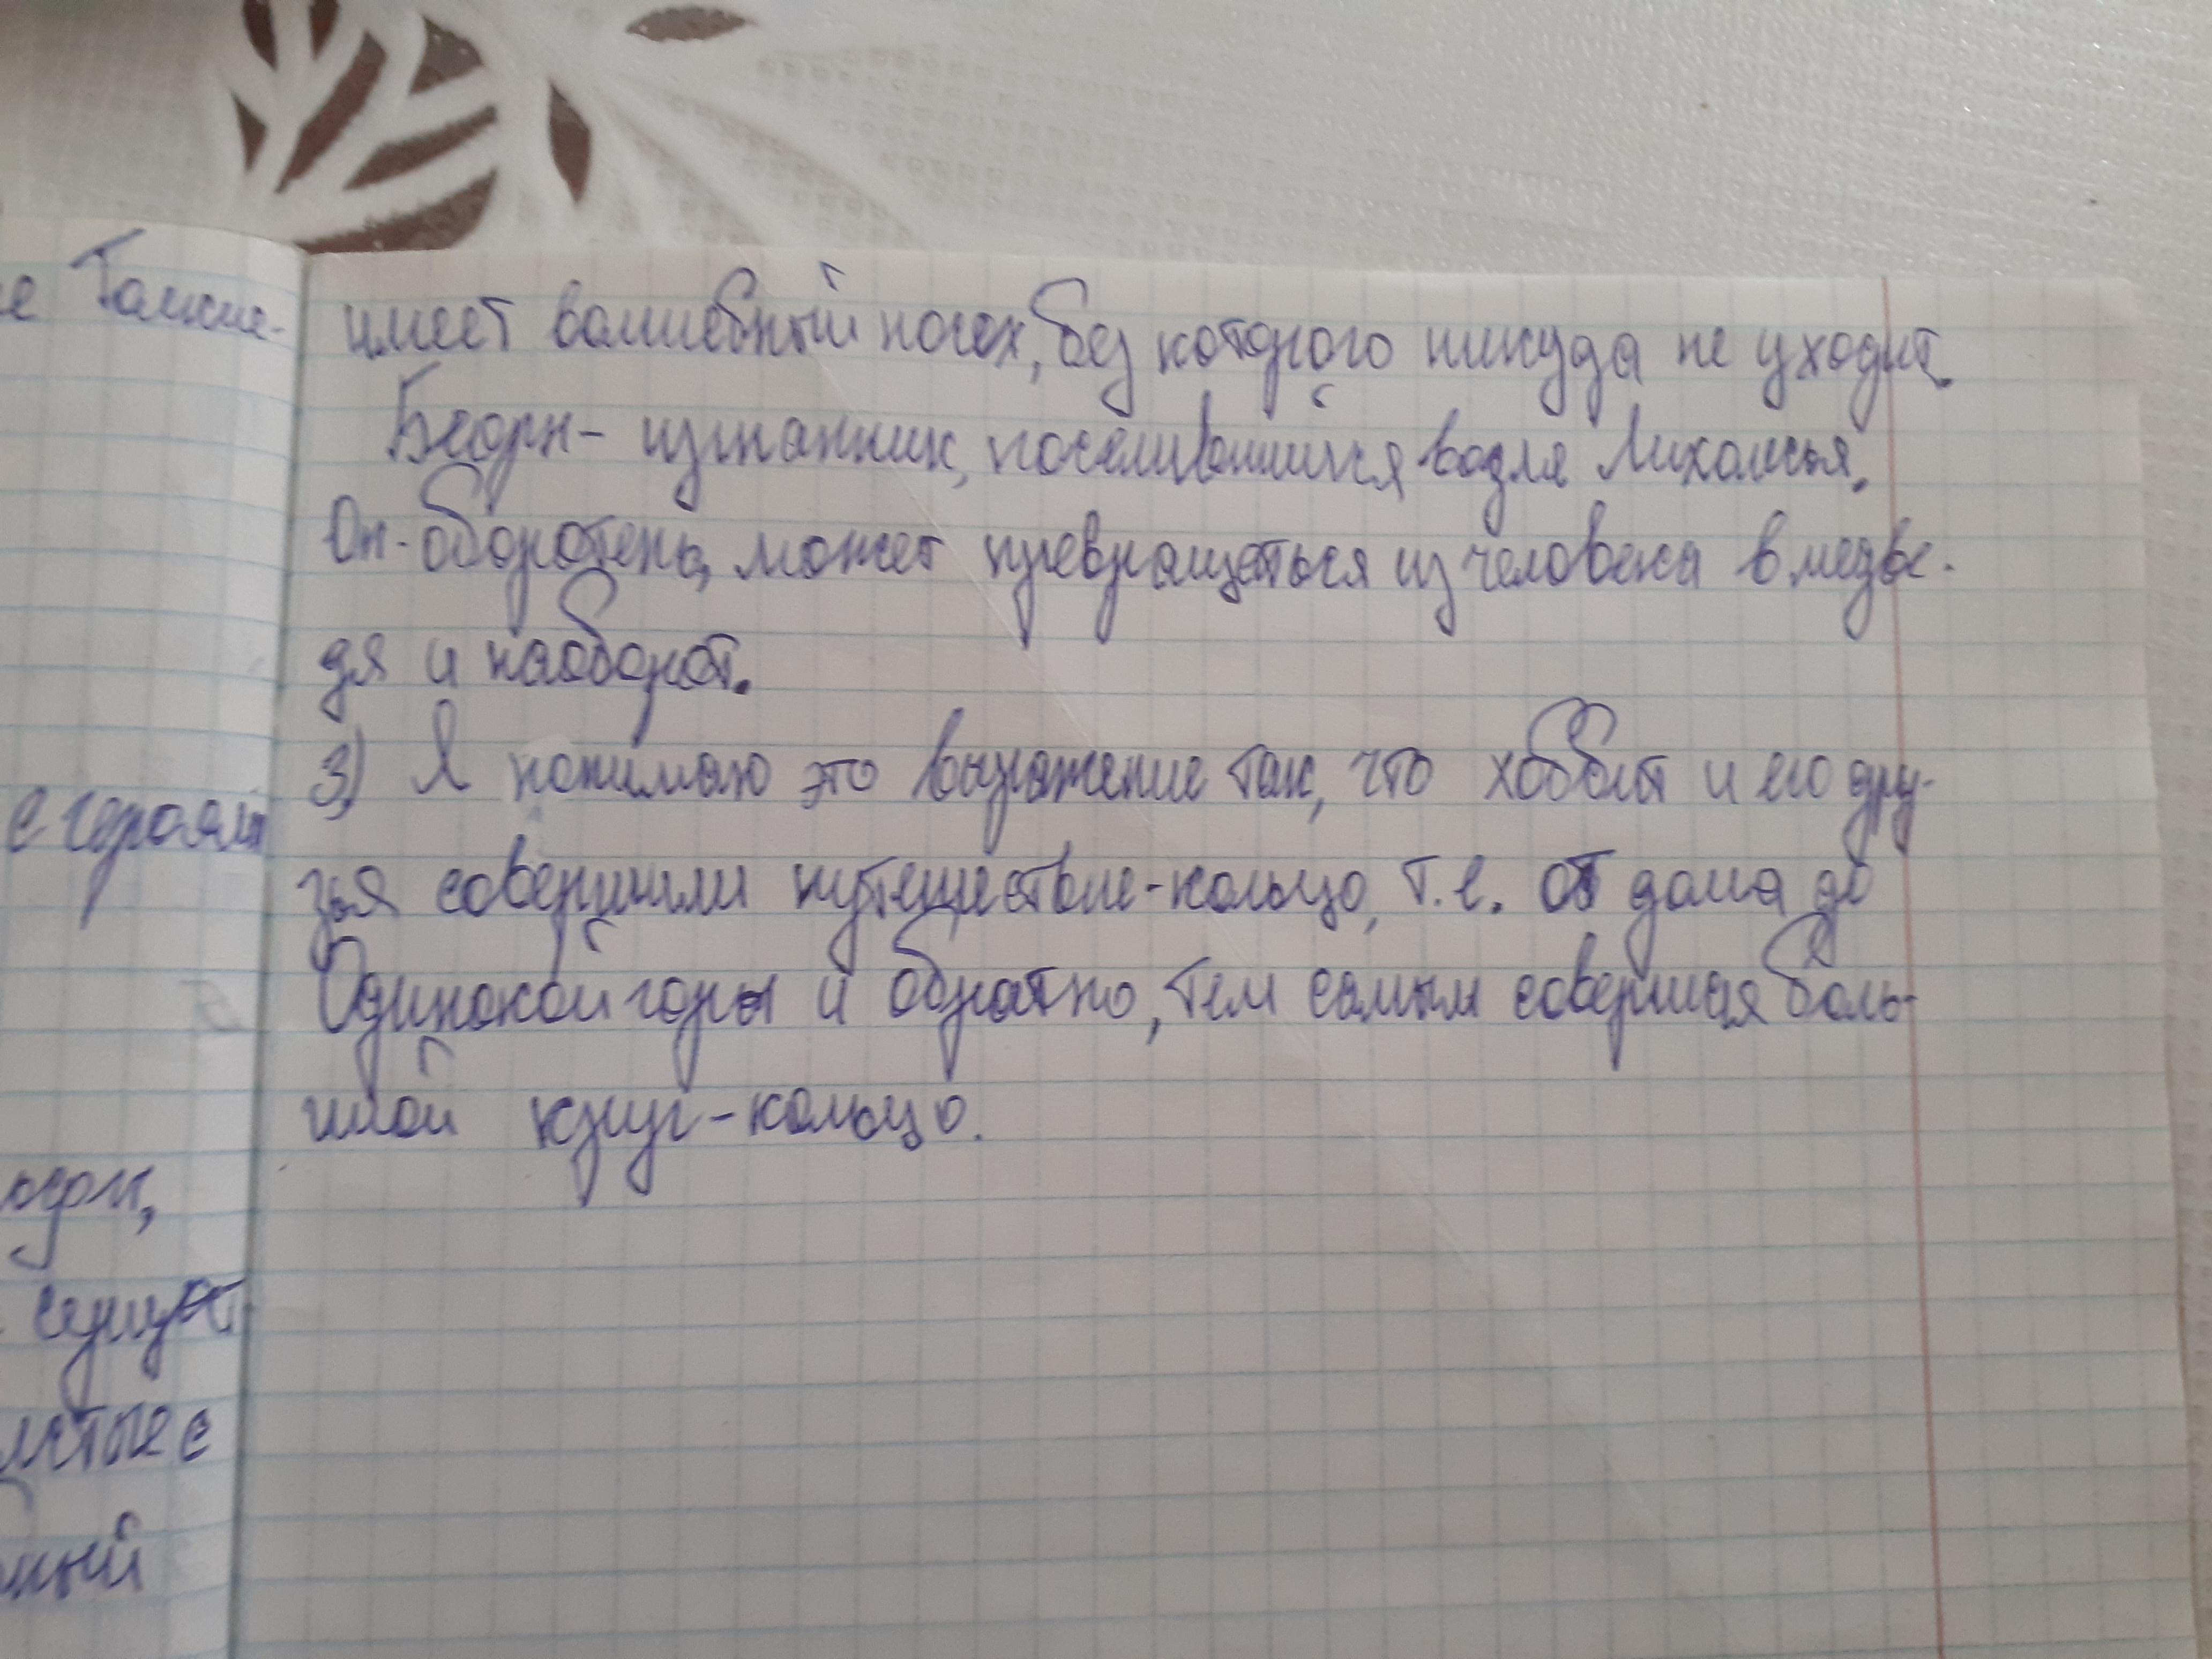 е Толкие-
с героям
сущ
имеет волшебный посох, без которого никуда не уходит.
Беорн - изгнанник, поселившийся возле Лихолесья.
Он - оборотень, может превращаться из человека в медве-
дя и наоборот.
3) Я понимаю это выражение так, что хоббит и его дру-
зья совершили путешествие-кольцо, т.е. от дома до
Одинокой горы и обратно, тем самым совершая боль-
шой круг-кольцо.